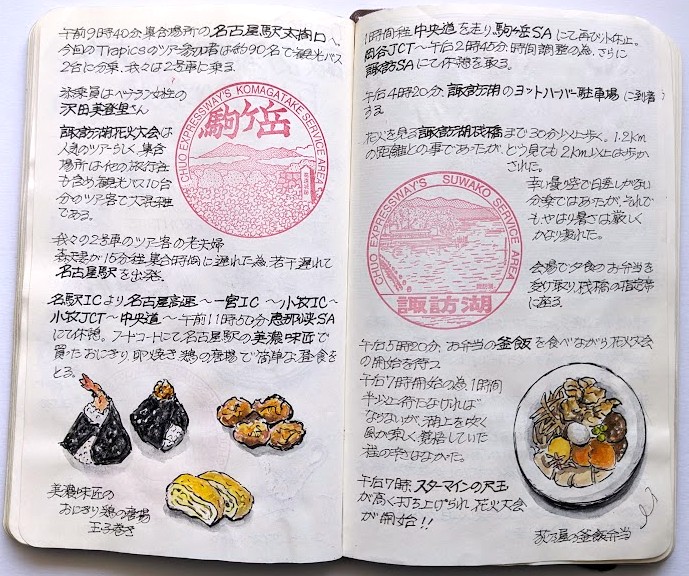 午前9時40分、集合場所の名古屋駅太閤口へ。
今回のTrapicsのツアー参加者は約90名で観光バス
2台に分乗、我々は2号車に乗る。
添乗員はベテラン女性の
沢田美登里さん
諏訪湖花火大会は
人気のツアーらしく、集合
場所は他の旅行会社
も含め観光バス10台
分のツアー客で大混雑
である。
CHUO EXPRESSWAY'S KOMAGATAKE SERVICE AREA
駒ヶ岳
我々の2号車のツアー客の老夫婦
が15分程、集合時間に遅れた為、若干遅れて
名古屋駅を出発。
名駅ICより名古屋高速〜一宮IC〜小牧IC〜
小牧JCT〜中央道〜午前11時50分恵那峡SA
にて休憩。フードコートにて名古屋駅の美濃味匠で
買ったおにぎり、卵焼き、鶏の唐揚で簡単な昼食を
とる。
美濃味匠の
おにぎり、鶏の唐揚
玉子巻き
1時間程、中央道を走り、駒ヶ岳SAにて再び小休止。
岡谷JCT〜午后2時45分、時間調整の為、さらに
諏訪SAにて休憩を取る。
午后4時20分、諏訪湖のヨットハーバー駐車場に到着
する
花火を見る諏訪湖桟橋まで30分以上歩く。1.2km
の距離との事であったが、どう見ても2km以上は歩か
された。
CHUO EXPRESSWAY'S SUWAKO SERVICE AREA
諏訪湖
幸い曇り空で日差しがない
分楽ではあったが、それで
もやはり暑さは厳しく
かなり疲れた。
会場で夕食のお弁当を
受け取り、桟橋の指定席
に座る。
午后5時20分、お弁当の釜飯を食べながら花火大会
の開始を待つ。
午后7時開始の為、1時間
半以上待たなければ
ならないが、湖上を吹く
風が涼しく、覚悟していた
程の辛さはなかった。
午后7時、スターマインの尺玉
が高く打ち上げられ、花火大会
が開始!!
荻乃屋の釜飯弁当